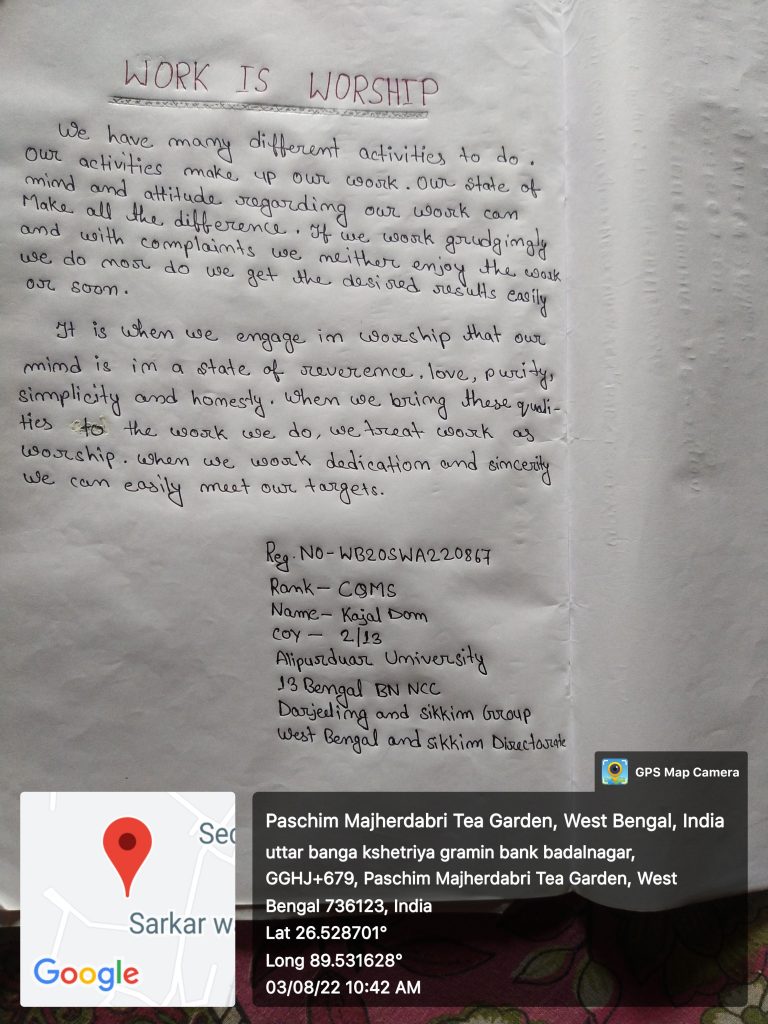 WORK IS WORSHIP
We have many different activities to do.
Our activities make up our work. Our state of
mind and attitude regarding our work can
Make all the difference. If we work grudgingly
and with complaints we neither enjoy the work
we do nor do we get the desired results easily
or soon.
It is when we engage in worship that our
mind is in a state of reverence, love, purity,
simplicity and honesty. When we bring these quali-
ties to the work we do, we treat work as
worship. When we work dedication and sincerity
we can easily meet our targets.
Reg. NO - WB20SWA220867
Rank - CQMS
Name - Kajal Dom
COY - 2/13
Alipurduar University
13 Bengal BN NCC
Darjeeling and Sikkim Group
West Bengal and Sikkim Directorate
GPS Map Camera
Sec
Sarkar w
Google
Paschim Majherdabri Tea Garden, West Bengal, India
uttar banga kshetriya gramin bank badalnagar,
GGHJ+679, Paschim Majherdabri Tea Garden, West
Bengal 736123, India
Lat 26.528701°
Long 89.531628°
03/08/22 10:42 AM